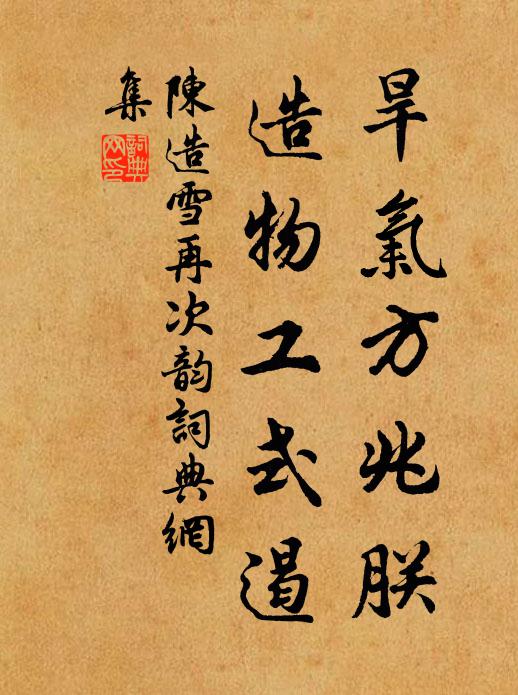 旱氣方兆朕
造物工式遏
陳造雪再次韵詞典網
集
詞典
网印